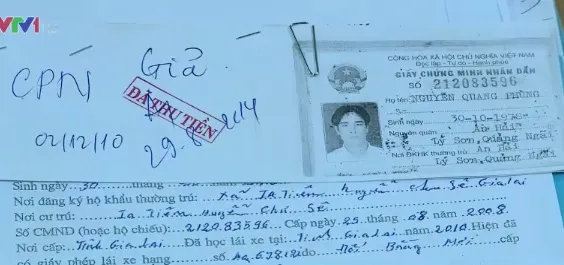 VTV1
CPN Giả
ĐÃ THU TIỀN
02/12/10
29.8 2014
CỘNG HÒA XÃ HỘI CHỦ NGHĨA VIỆT NAM
Độc lập - Tự do - Hạnh phúc
GIẤY CHỨNG MINH NHÂN DÂN
SỐ 212083596
Họ tên NGUYỄN QUANG PHỤNG
Sinh ngày 30-10-1970
Nguyên quán An Hải
Lý Sơn, Quảng Ngãi
Nơi ĐKHK thường trú An Hải
Lý Sơn, Quảng Ngãi
Sinh ngày 30 tháng năm
Nơi đăng ký hộ khẩu thường trú: Xã Ia Tiêm huyện Chư Sê Gia Lai
Nơi cư trú: Ia Tiêm huyện Chư Sê
Số CMND (hoặc hộ chiếu): 212083596 Cấp ngày 25 tháng 08 năm 2008
Nơi cấp: Tỉnh Gia Lai Đã học lái xe tại: Tỉnh Gia Lai năm 2010 Hiện đã
có giấy phép lái xe hạng số do cấp